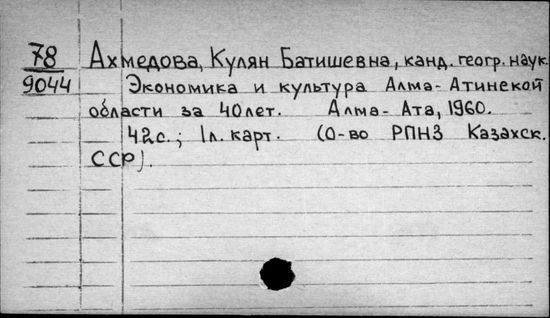 78
9044
Ахмедова, Кулян Батишевна, канд. геогр. наук.
Экономика и культура Алма-Атинской
области за 40 лет. Алма-Ата, 1960.
42с.; 1л. карт. (О-во РПНЗ Казахск.
ССР).